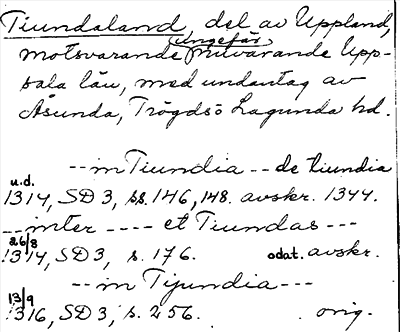 Tiundaland, del av Uppland,
motsvarande (ungefär) nuvarande Upp-
sala län, med undantag av
Åsunda, Trögds o Lagunda hd.
--in Tiundia -- de tiundia
u.d.
1314, SD 3, ss. 146, 148. avskr. 1344.
--inter ---- et Tiundas ---
26/8
1314, SD 3, s. 176. odat. avskr.
--in Tijundia ---
13/9
1316, SD 3, s. 256. orig.